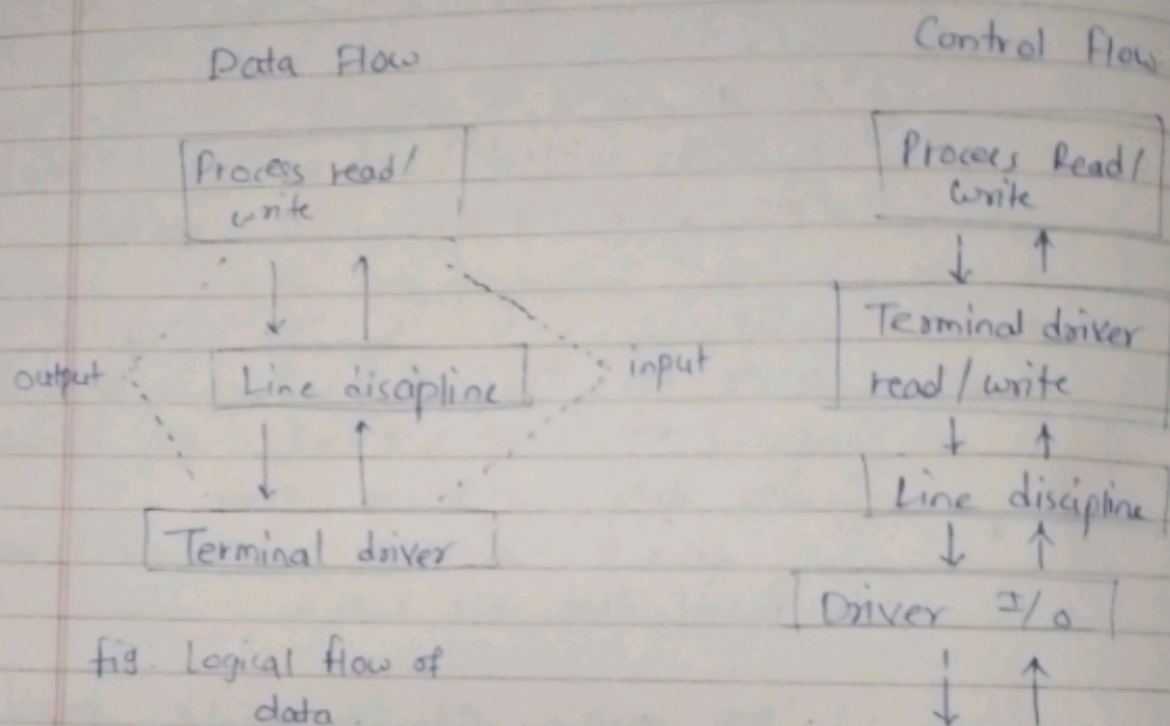 Data Flow
Process read/
write
output
Line discipline
input
Terminal driver
fig. Logical flow of
data.
Control Flow
Process Read/
write
Terminal driver
read/write
Line discipline
Driver I/O